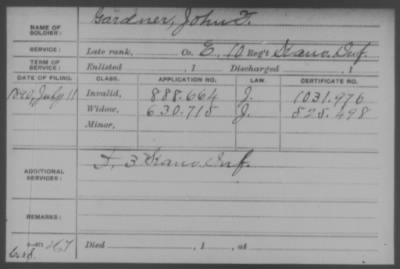 NAME OF SOLDIER: Gardner, John T.
SERVICE: Late rank, Co. E, 10 Reg't Kans. Inf.
TERM OF SERVICE: Enlisted , 1 Discharged , 1
DATE OF FILING. CLASS. APPLICATION NO. LAW. CERTIFICATE NO.
July 11 Invalid, 888.664 J. 1031.976
Widow, 630.715 J. 525.498
Minor,
ADDITIONAL SERVICES: F, 3 Kans. Inf.
REMARKS:
Died , 1 , at